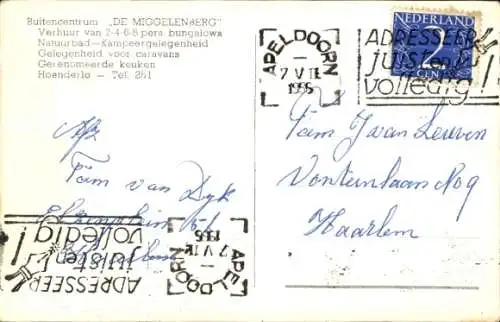 Buitencentrum „DE MIGGELENBERG"
Verhuur van 2-4-6-8 pers bungalows
Natuurbad-Kampeergelegenheid
Gelegenheid voor caravans
Gerenomeerde keuken
Hoenderlo - Tel. 251
APELDOORN
7 VII
1955
NEDERLAND
2
CENT
ADRESSEER
JUIST en
volledig!
Fam J van Leuven
Vonteinlaan No 9
Haarlem
Afz
Fam van Dyk
ADRESSEER
JUIST en
volledig!
APELDOORN
7 VII
1955